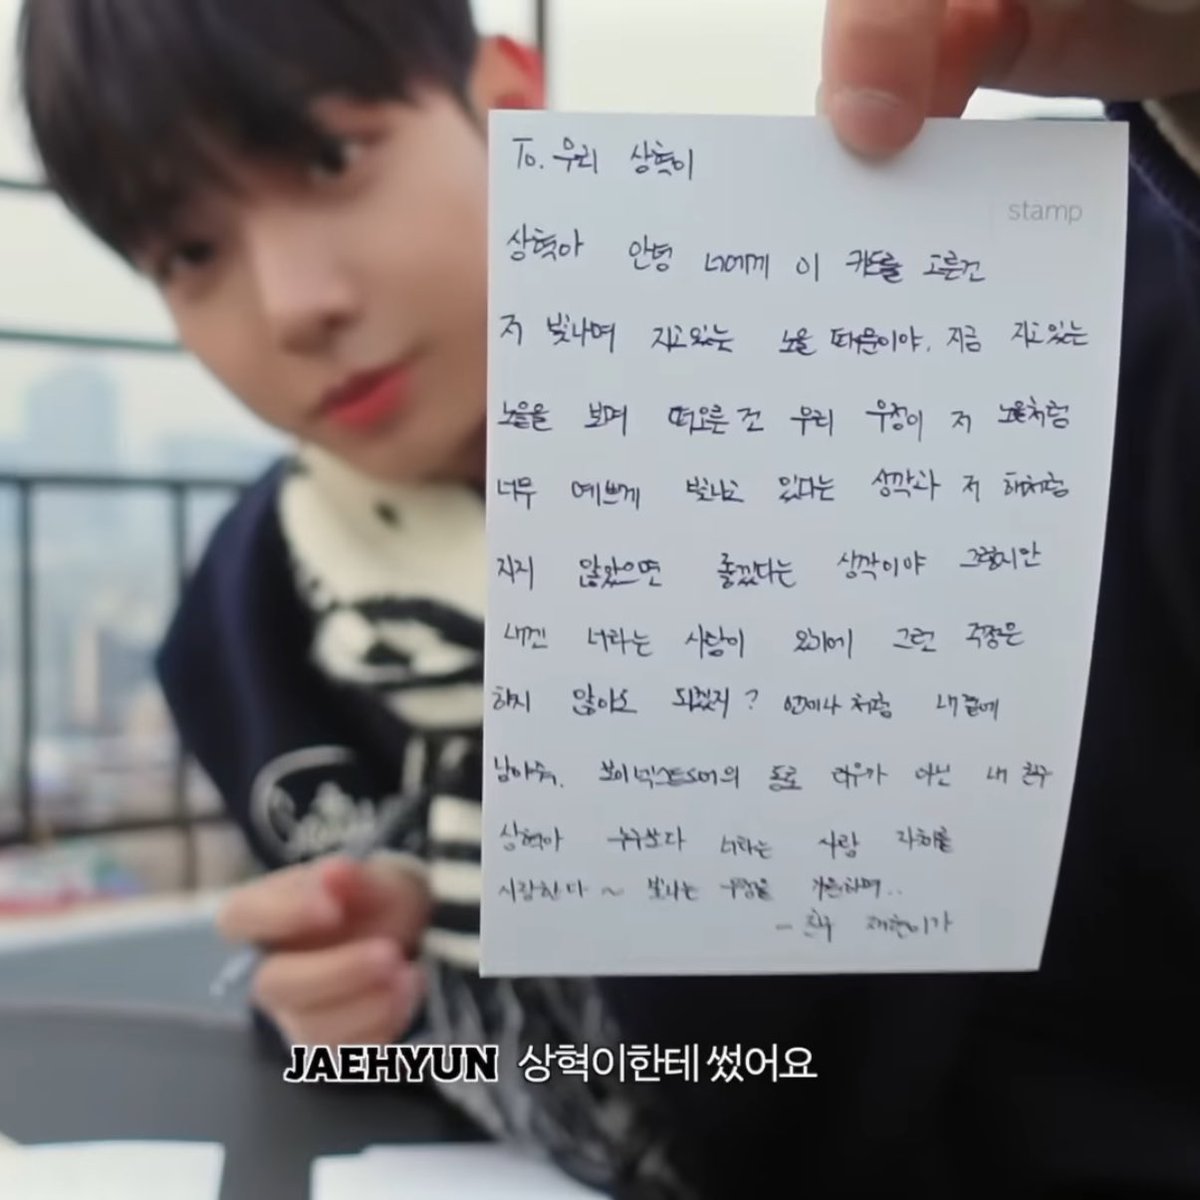 To. 우리 상혁이
stamp
상혁아 안녕 너에게 이 카드를 고른건
저 빛나며 지고있는 노을 때문이야. 지금 지고있는
노을을 보며 떠오른건 우리 우정이 저 노을처럼
너무 예쁘게 빛나고 있다는 생각과 저 해처럼
지지 않았으면 좋겠다는 생각이야 그렇지만
내겐 너라는 사람이 있기에 그런 걱정은
하지 않아도 되겠지? 언제나처럼 내 곁에
남아줘. 보이넥스트도어의 동료 리우가 아닌 내 친구
상혁아 누구보다 너라는 사람 자체를
사랑한다 ~ 빛나는 우정을 기원하며..
- 친구 재현이가
JAEHYUN 상혁이한테 썼어요